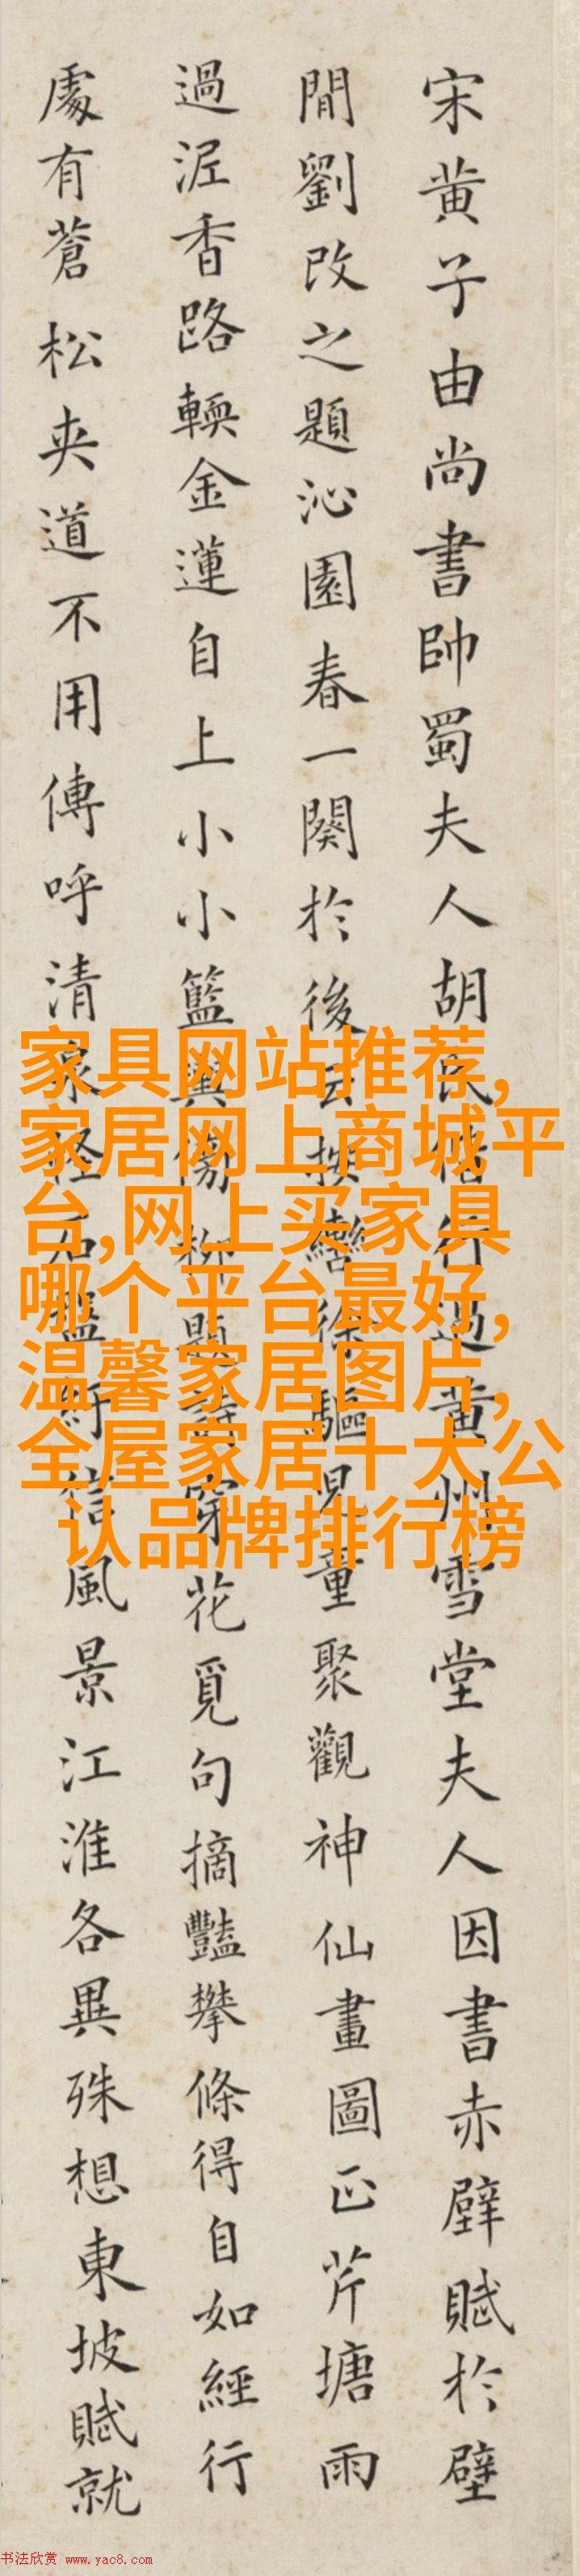 宋黄子由尚書帥蜀夫人胡氏偕行過黄州雪堂夫人因書赤壁賦於壁
間劉改之題沁園春一闋於後云按轡徐驅兒童聚觀神仙畫圖正芹塘雨
過泥香路輭金蓮自上小小籃輿傍柳題詩穿花覓句摘豔攀條得自如經行
處有蒼松夾道不用傳呼清泉怪石盤紆信風景江淮各異殊想東坡賦就
家具网站推荐,
家居网上商城平
台,网上买家具
哪个平台最好,
温馨家居图片,
全屋家居十大公
认品牌排行榜
书法欣赏 www.yac8.com